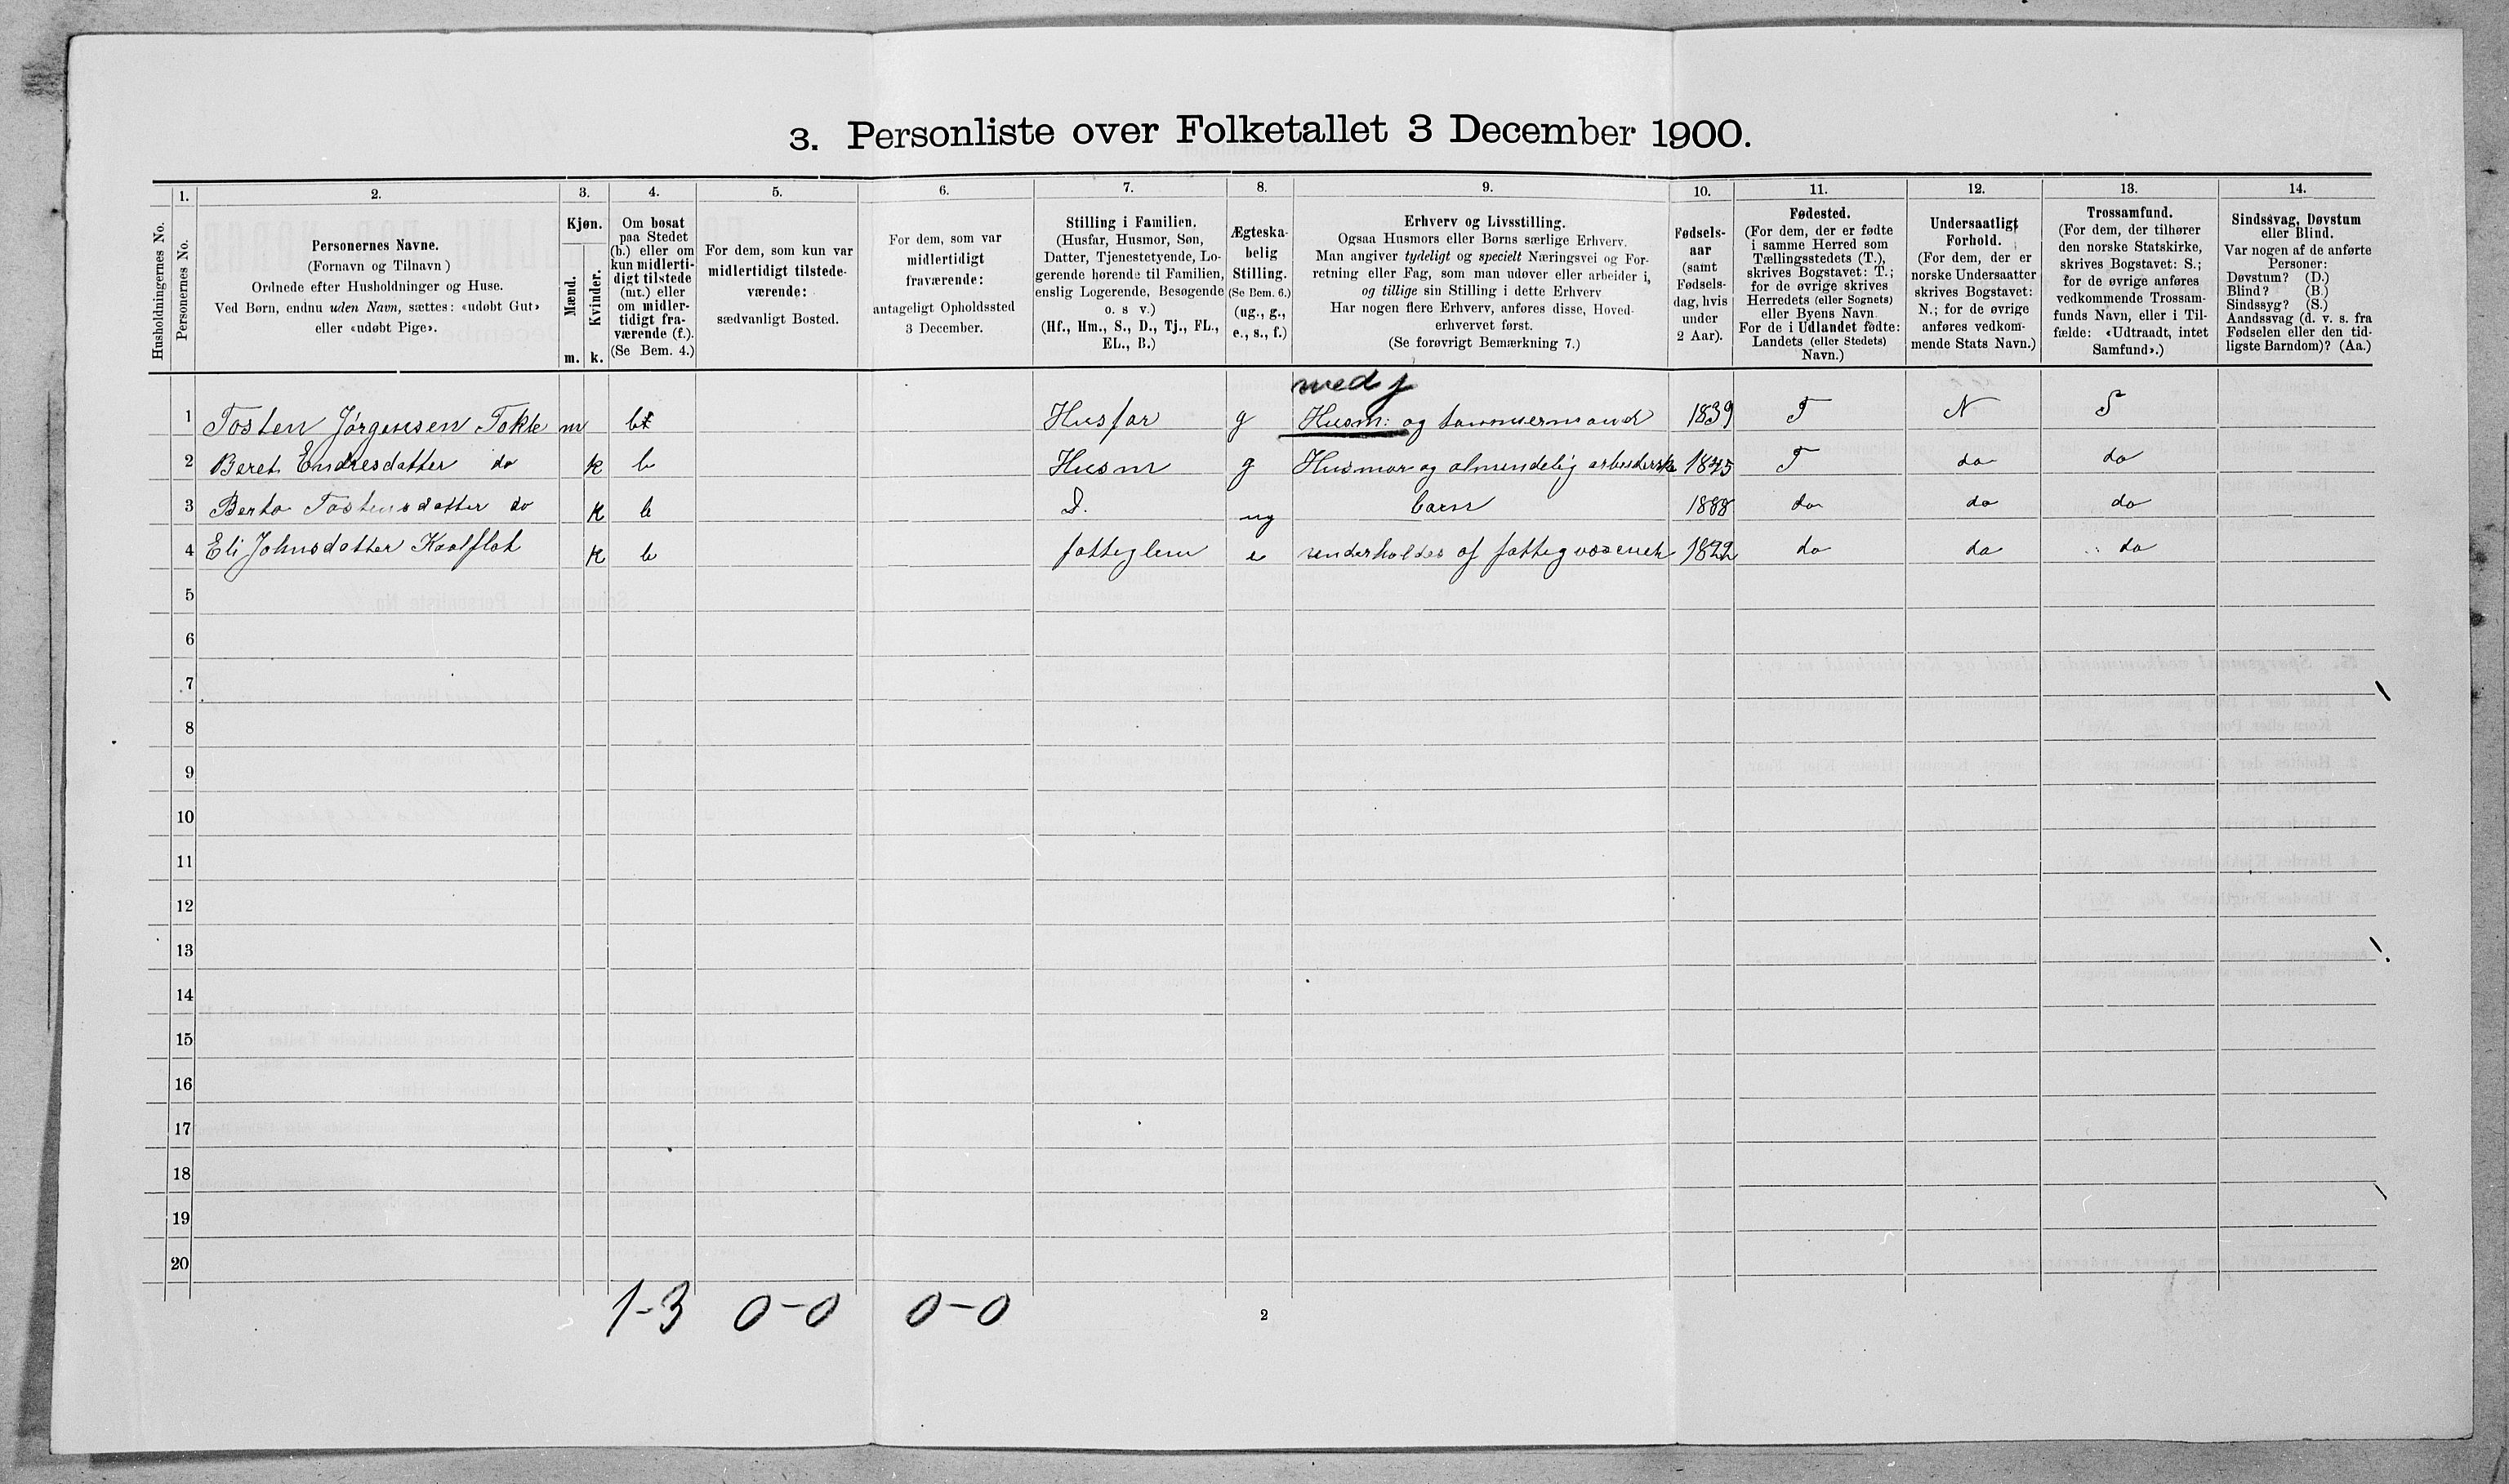 3. Personliste over Folketallet 3 December 1900.
Husholdningernes No.
1.
Personernes No.
2.
Personernes Navne.
(Fornavn og Tilnavn)
Ordnede efter Husholdninger og Huse.
Ved Børn, endnu uden Navn, sættes: «udøbt Gut»
eller «udøbt Pige».
3.
Kjøn.
Mænd.
m.
Kvinder.
k.
4.
Om bosat
paa Stedet
(b.) eller om
kun midlerti-
digt tilstede
(mt.) eller
om midler-
tidigt fra-
værende (f.).
(Se Bem. 4.)
5.
For dem, som kun var
midlertidigt tilstede-
værende:
sædvanligt Bosted.
6.
For dem, som var
midlertidigt
fraværende:
antageligt Opholdssted
3 December.
7.
Stilling i Familien.
(Husfar, Husmor, Søn,
Datter, Tjenestetyende, Lo-
gerende hørende til Familien,
enslig Logerende, Besøgende
o. s v.)
(Hf., Hm., S., D., Tj., FL.,
EL., B.)
8.
Ægteska-
belig
Stilling.
(Se Bem. 6.)
(ug., g.,
e., s., f.)
9.
Erhverv og Livsstilling.
Ogsaa Husmors eller Børns særlige Erhverv.
Man angiver tydeligt og specielt Næringsvei og For-
retning eller Fag, som man udøver eller arbeider i,
og tillige sin Stilling i dette Erhverv
Har nogen flere Erhverv, anføres disse, Hoved-
erhvervet først.
(Se forøvrigt Bemærkning 7.)
10.
Fødsels-
aar
(samt
Fødsels-
dag, hvis
under
2 Aar).
11.
Fødested.
(For dem, der er fødte
i samme Herred som
Tællingsstedets (T.),
skrives Bogstavet: T.;
for de øvrige skrives
Herredets (eller Sognets)
eller Byens Navn
For de i Udlandet fødte:
Landets (eller Stedets)
Navn.)
12.
Undersaatligt
Forhold.
(For dem, der er
norske Undersaatter
skrives Bogstavet:
N.; for de øvrige
anføres vedkom-
mende Stats Navn.)
13.
Trossamfund.
(For dem, der tilhører
den norske Statskirke,
skrives Bogstavet: S.;
for de øvrige anføres
vedkommende Trossam-
funds Navn, eller i Til-
fælde: «Udtraadt, intet
Samfund».)
14.
Sindssvag, Døvstum
eller Blind.
Var nogen af de anførte
Personer:
Døvstum? (D.)
Blind? (B.)
Sindssyg? (S.)
Aandssvag (d. v. s. fra
Fødselen eller den tid-
ligste Barndom)? (Aa.)
med j
1 Tosten Jørgensen Tokle m b Husfar g Husm: og tømmermand 1839 T N S
2 Beret Endresdatter do k b Husm g Husmor og almendelig arbeiderske 1845 T do do
3 Berta Tostensdatter do k b D. ug barn 1888 do do do
4 Eli Johnsdatter k b fatteglem e underholdes af fattegvæsenet 1822 do do do
5
6
7
8
9
10
11
12
13
14
15
16
17
18
19
20
1-3 0-0 0-0
2